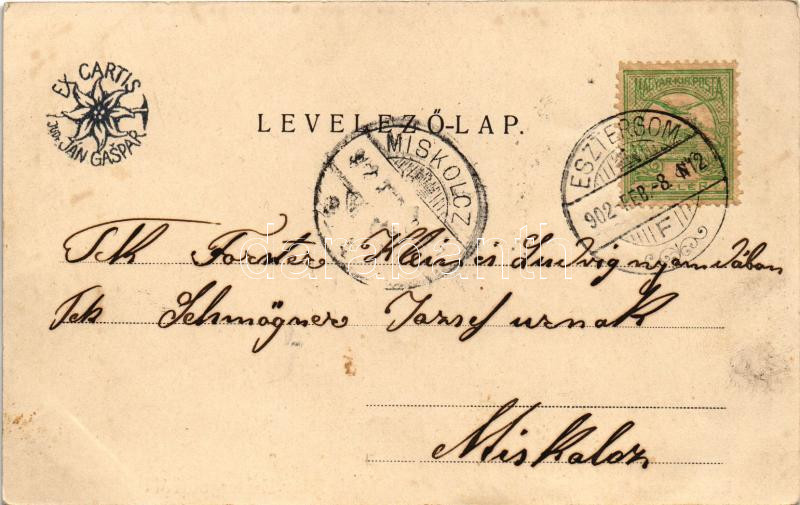 EX CARTIS
JUDr. JÁN GAŠPAR
LEVELEZŐ-LAP.
MAGYAR·KIR·POSTA
ESZTERGOM
902 FEB -8 N12
F
MISKOLCZ
Tek Forster Klein és Ludvig nyomdában
Tek Schmögner Jozsef urnak
Miskolcz
darabanth